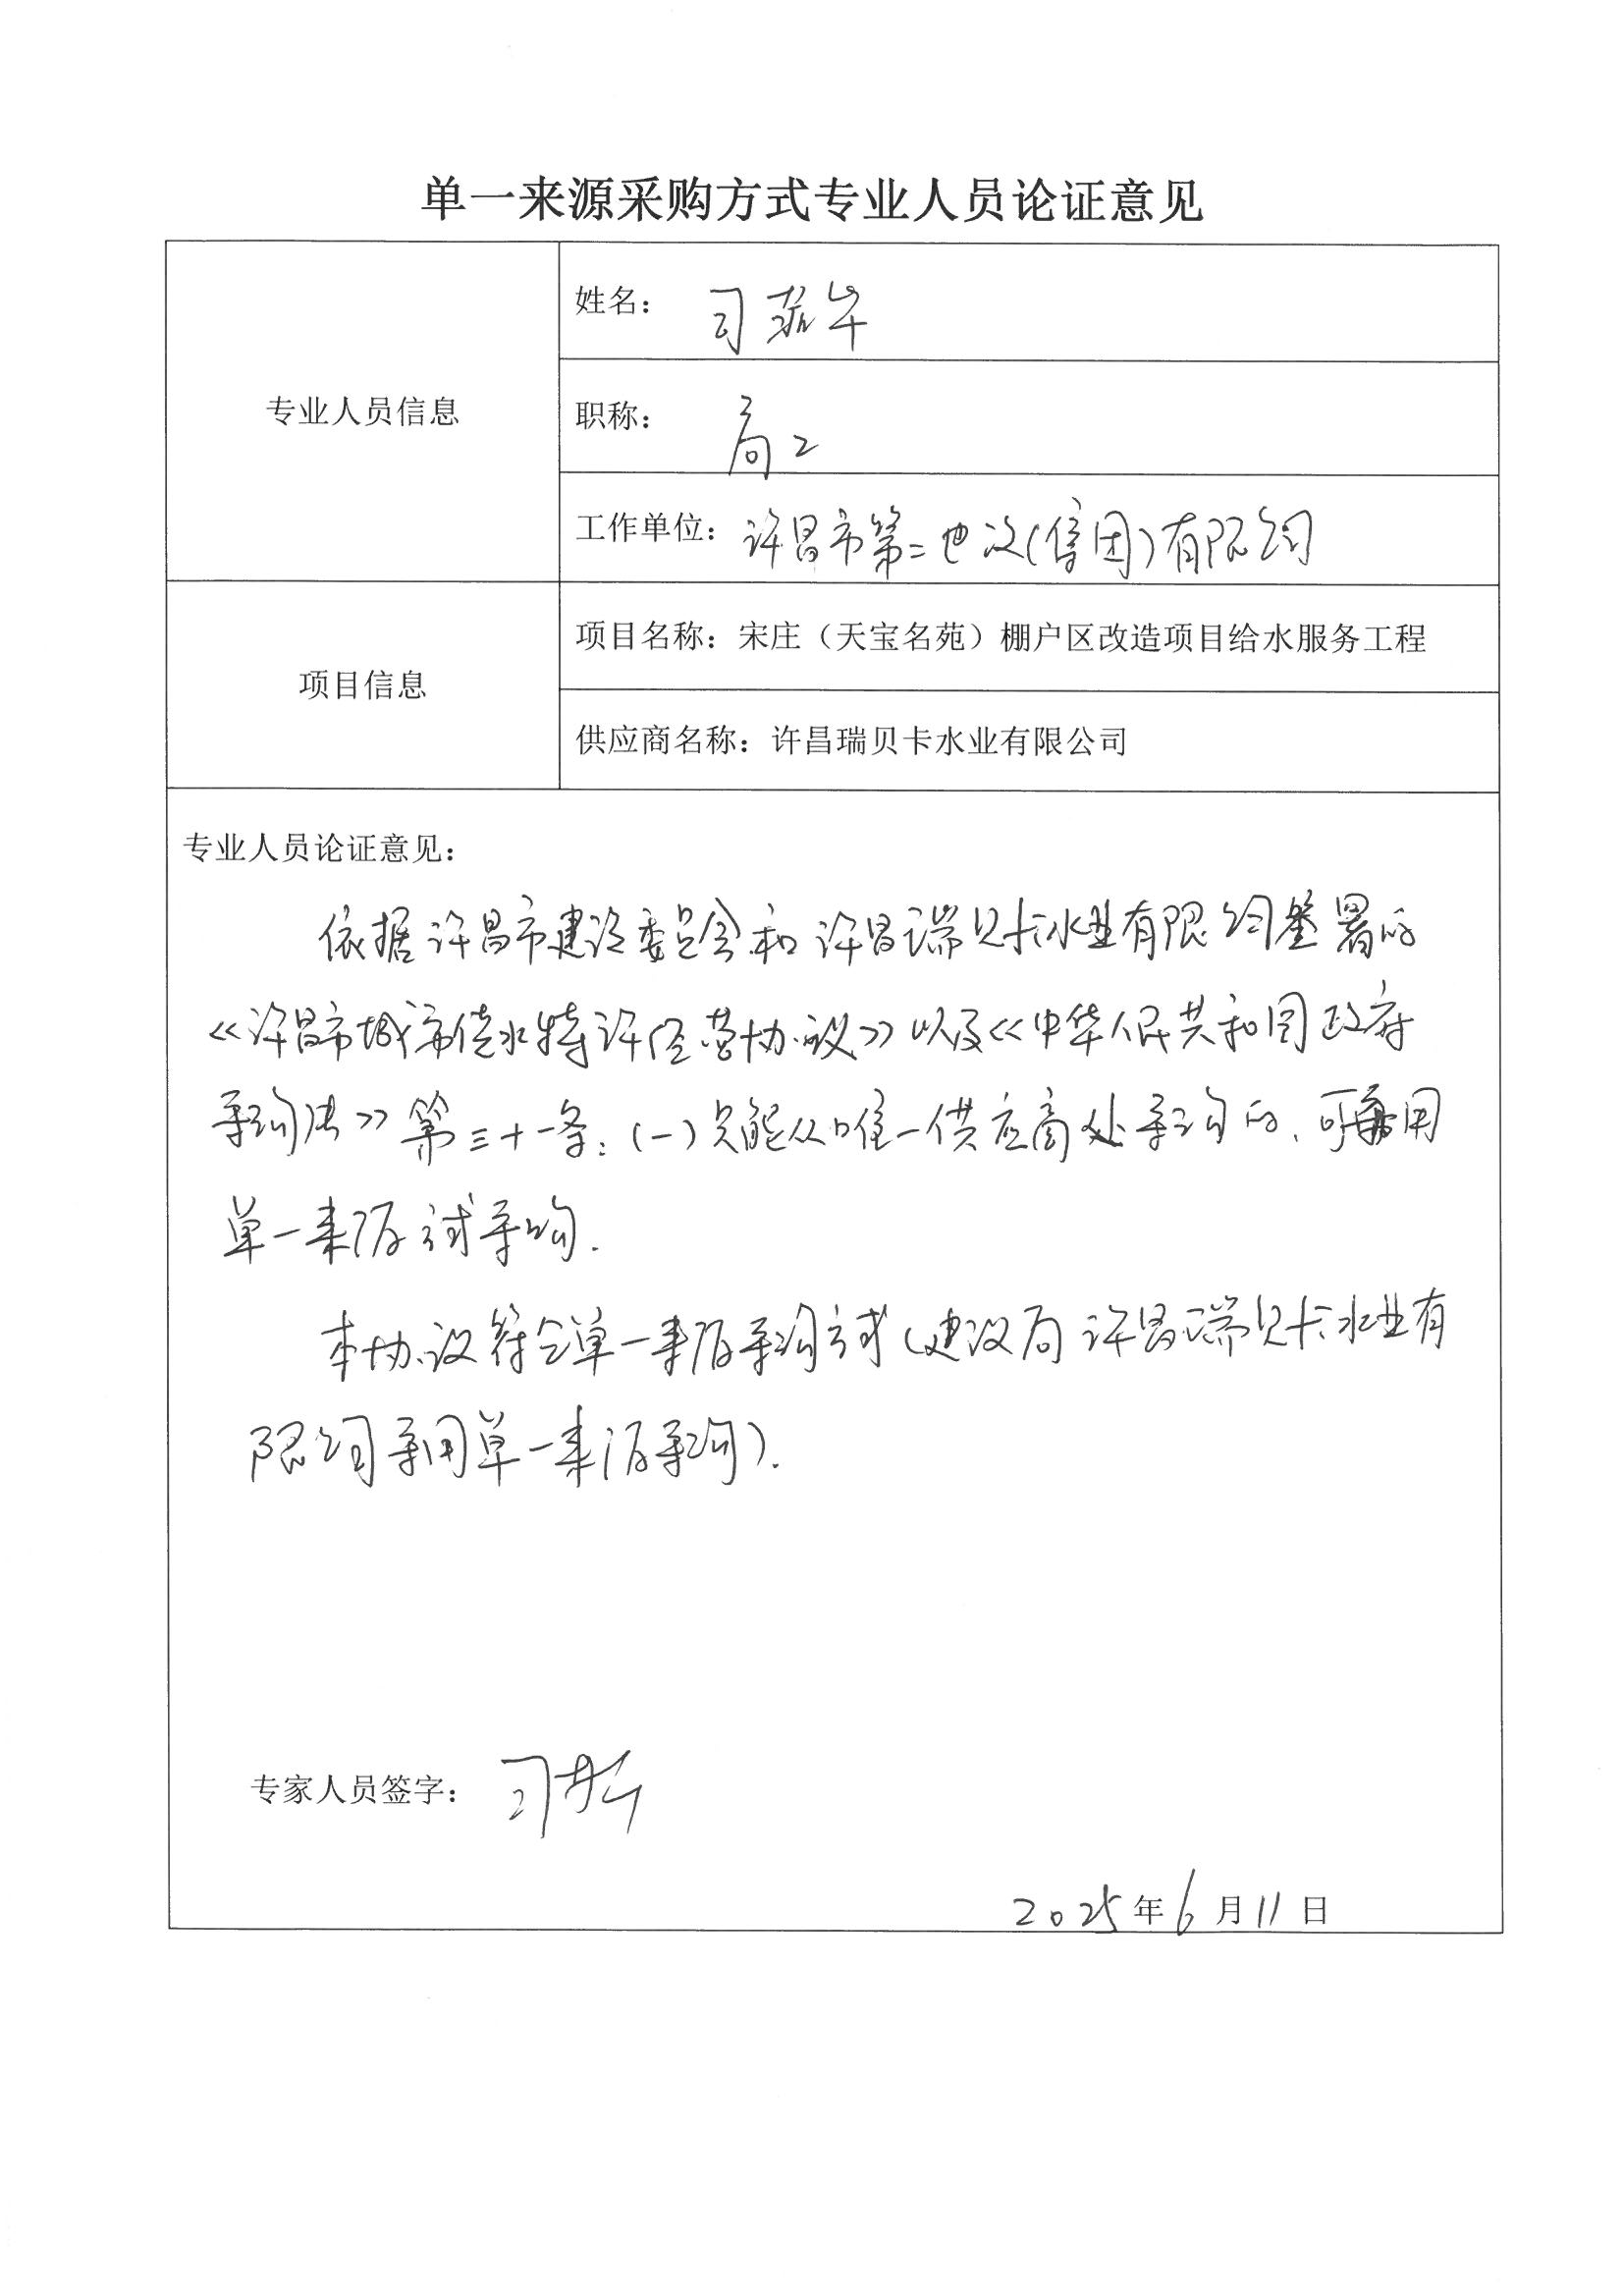 单一来源采购方式专业人员论证意见
专业人员信息
姓名：司
职称：高工
工作单位：许昌市第二建设（集团）有限公司
项目信息
项目名称：宋庄（天宝名苑）棚户区改造项目给水服务工程
供应商名称：许昌瑞贝卡水业有限公司
专业人员论证意见：
依据许昌市建设委员会和许昌瑞贝卡水业有限公司签署的
《许昌市城市供水特许经营协议》以及《中华人民共和国政府
采购法》第三十一条：（一）只能从唯一供应商处采购的，可采用
单一来源方式采购．
本协议符合单一来源采购方式（建设局 许昌瑞贝卡水业有
限公司采用单一来源采购）．
专家人员签字：司
2025年6月11日